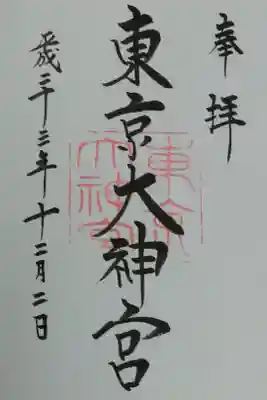 奉拝
東京大神宮
東京
大神宮
平成二十三年十二月二日